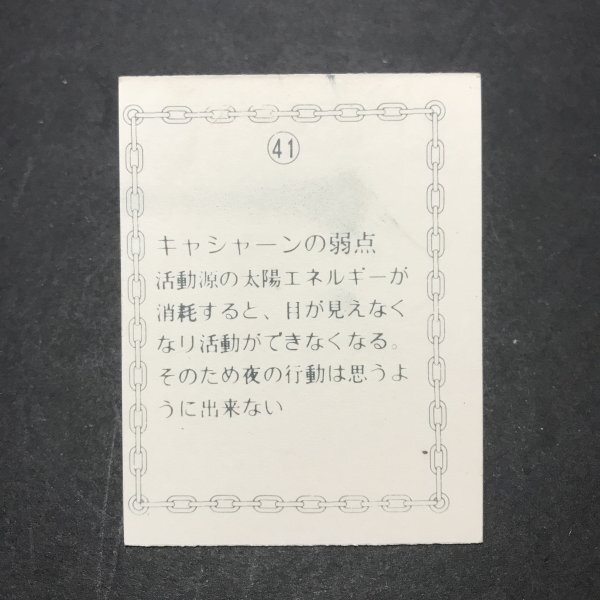 41
キャシャーンの弱点
活動源の太陽エネルギーが
消耗すると、目が見えなく
なり活動ができなくなる。
そのため夜の行動は思うよ
うに出来ない